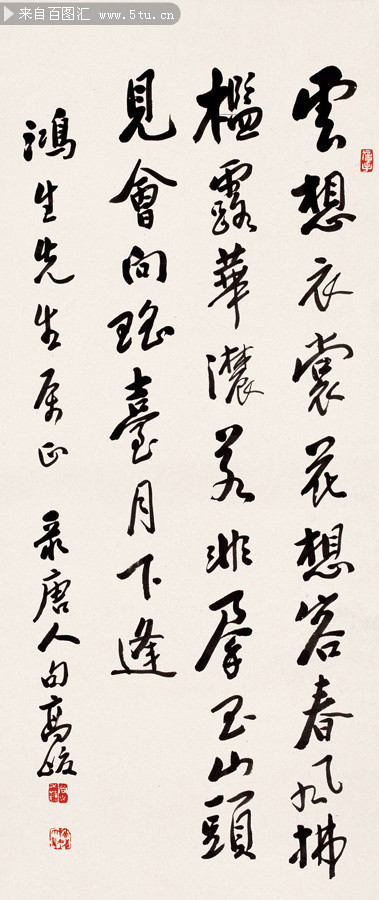 来自百图汇 www.5tu.cn
雲想衣裳花想容春風拂
檻露華濃若非羣玉山頭
見會向瑤臺月下逢
鴻生先生属正 录唐人句高峻